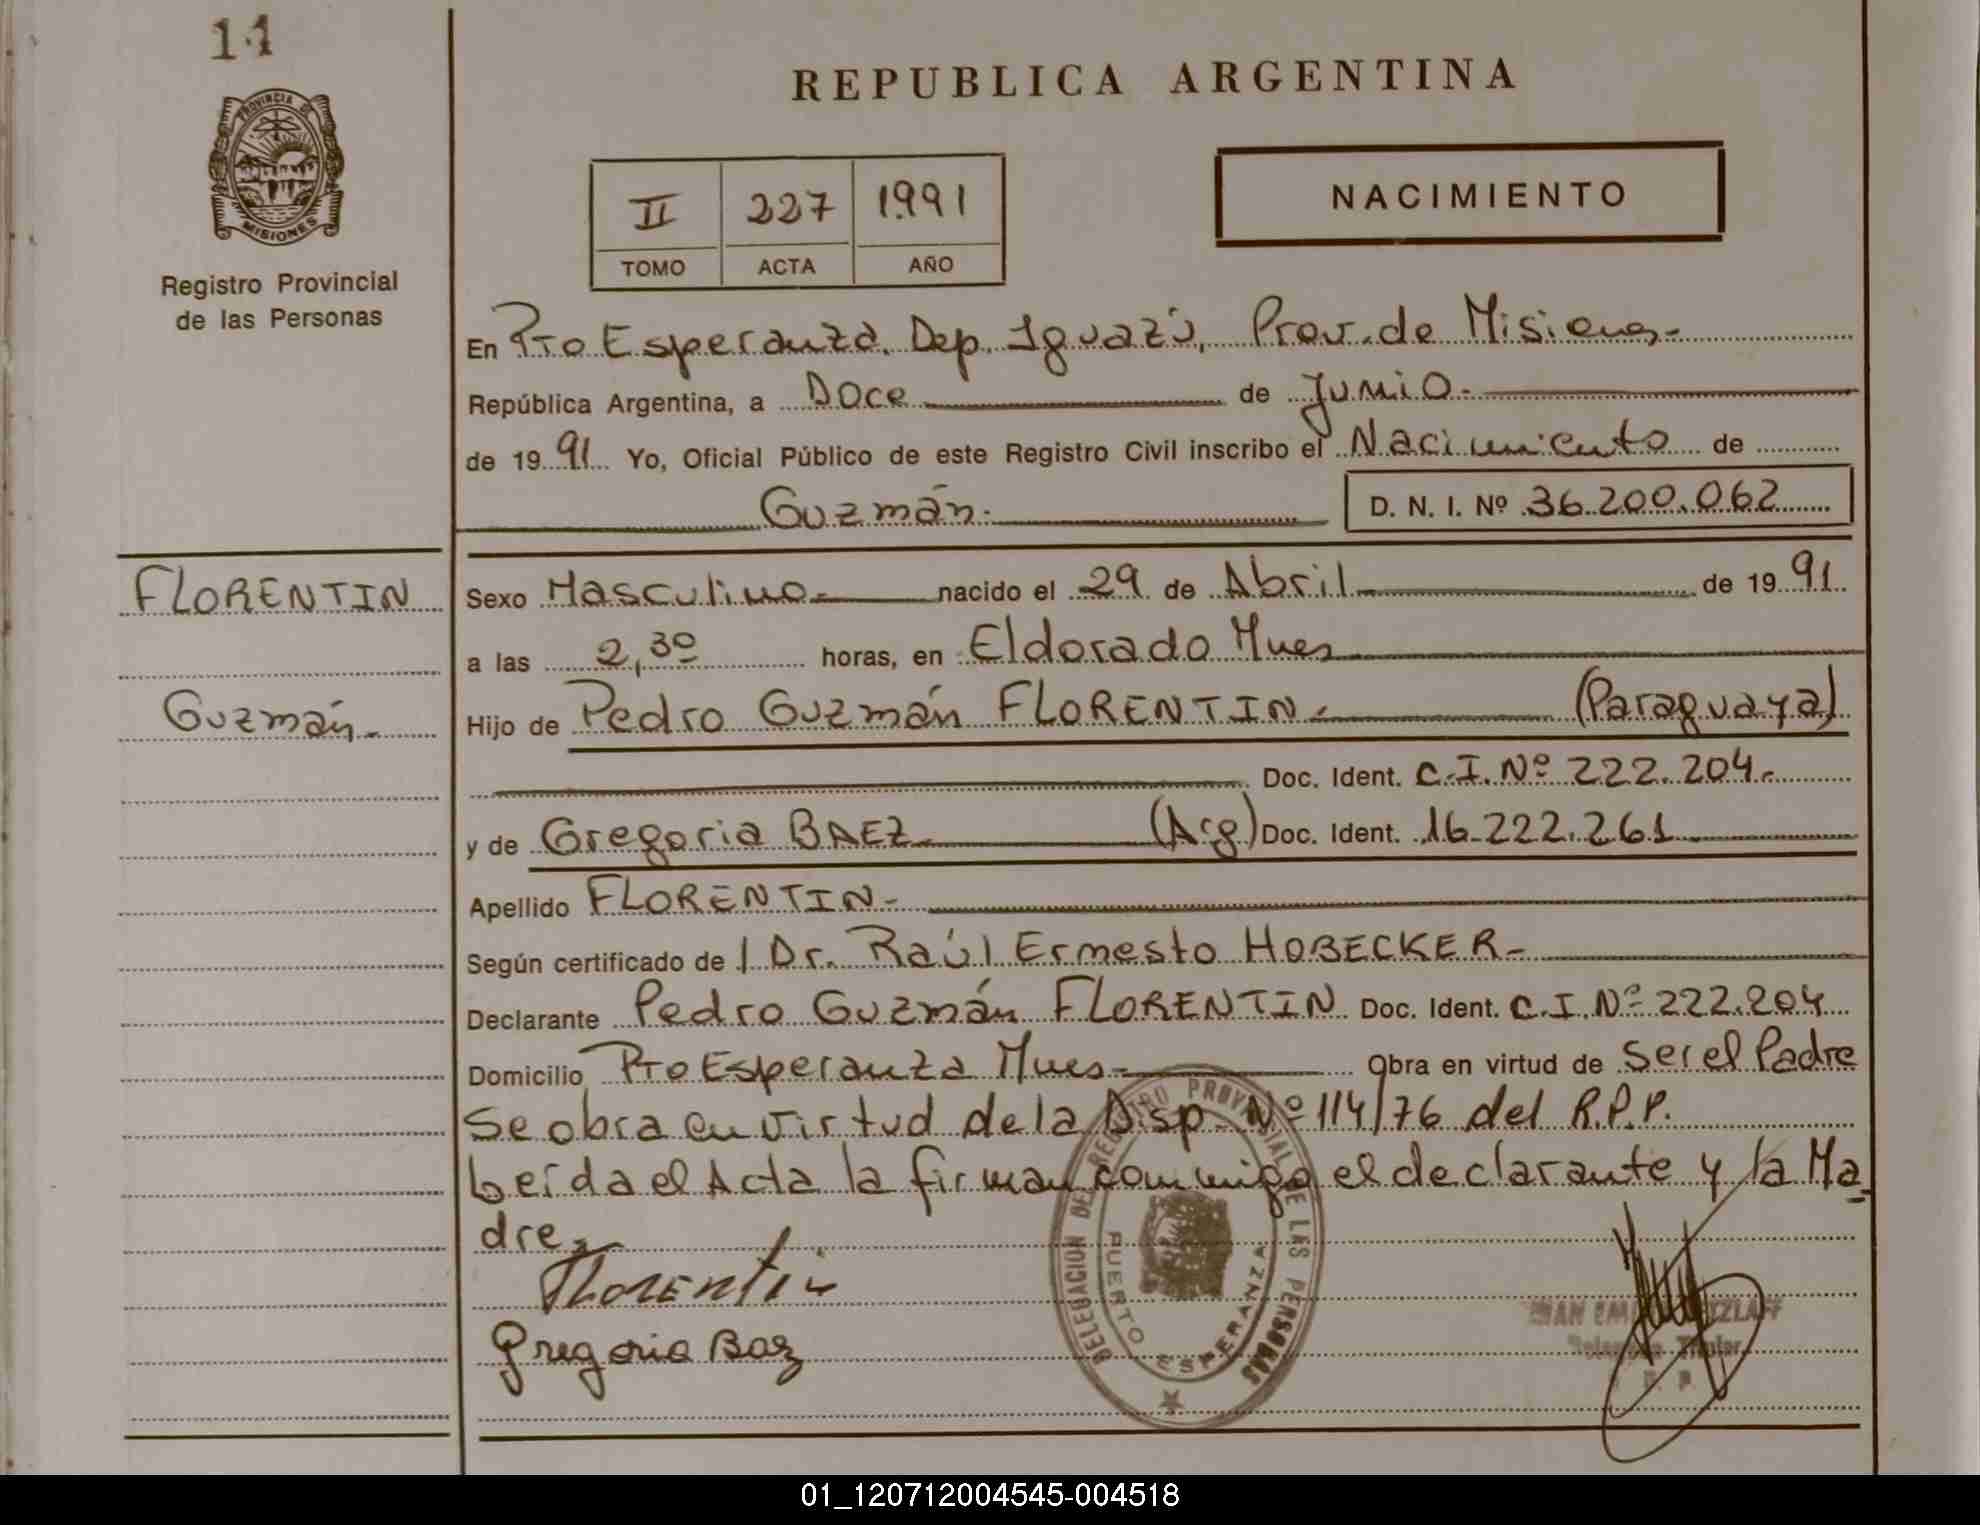 11
REPUBLICA ARGENTINA
PROVINCIA DE
MISIONES
Registro Provincial
de las Personas
II 227 1991
TOMO ACTA AÑO
NACIMIENTO
En Pto Esperanza. Dep. Iguazú, Prov. de Misiones.-
República Argentina, a Doce de Junio.-
de 1991 Yo, Oficial Público de este Registro Civil inscribo el Nacimiento de
Guzmán.
D. N. I. Nº 36.200.062
FLORENTIN
Guzmán.-
Sexo Masculino.- nacido el 29 de Abril de 1991.
a las 2,30 horas, en Eldorado Mnes
Hijo de Pedro Guzmán FLORENTIN.- (Paraguaya)
Doc. Ident. C.I. Nº 222.204.-
y de Gregoria BAEZ.- (Arg) Doc. Ident. 16.222.261
Apellido FLORENTIN.-
Según certificado de l Dr. Raúl Ernesto HOBECKER.-
Declarante Pedro Guzmán FLORENTIN Doc. Ident. C.I. Nº 222.204
Domicilio Pto Esperanza Mnes.- Obra en virtud de Ser el Padre
Se obra en virtud de la Disp. Nº 114/76 del R.P.P.
Leída el Acta la firman conmigo el declarante y la Ma
dre.
Florentin
Gregoria Baez
DELEGACION DEL REGISTRO PROVINCIAL DE LAS PERSONAS
PUERTO ESPERANZA
Titular
01_120712004545-004518